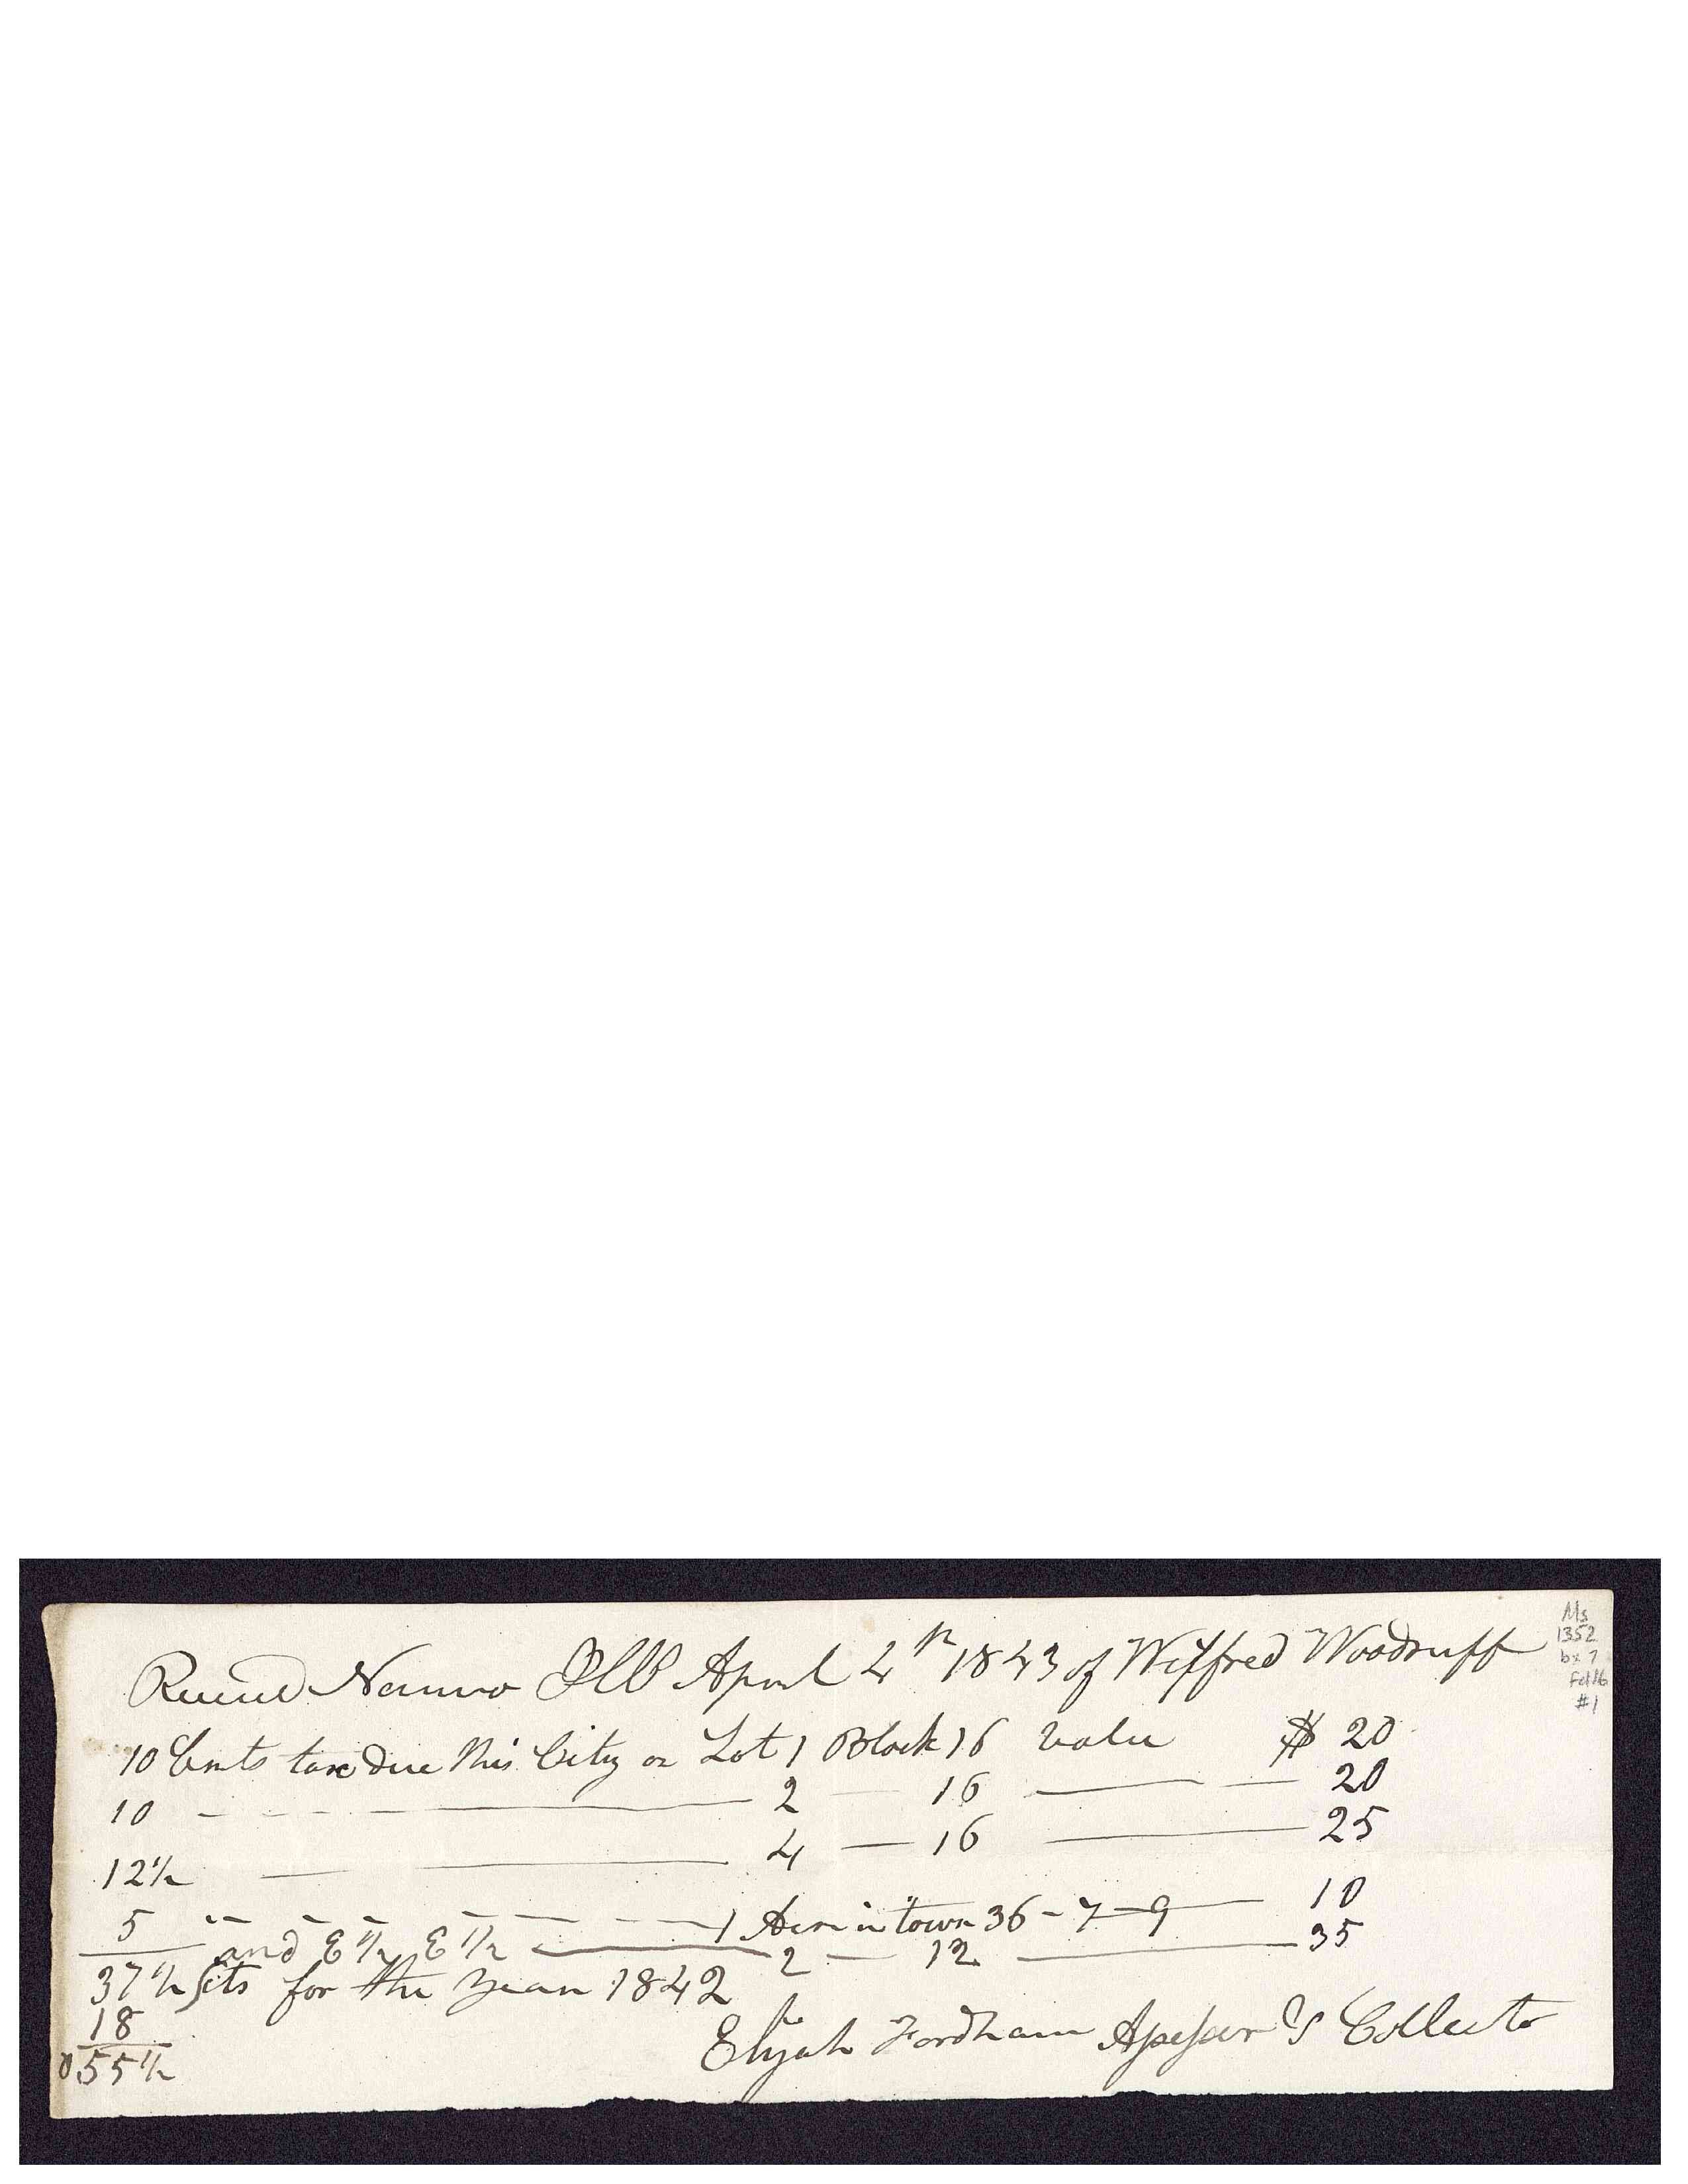 Received Nauvoo Ill April 4th 1843 of Wilford Woodruff
10 Cents tax due this City on Lot 1 Block 16 value $ 20
10 — — — 2 — 16 — — 20
12 1/2 — — 4 — 16 — 25
5 " — — — — — — 1 Acre in town 36 - 7 - 9 — 10
and E 1/2 E 1/2 — 2 — 12 — 35
37 1/2 cts for the year 1842
18
0.55 1/2
Elijah Fordham Assessor & Collector
Ms
1352
bx 7
Fd 16
#1